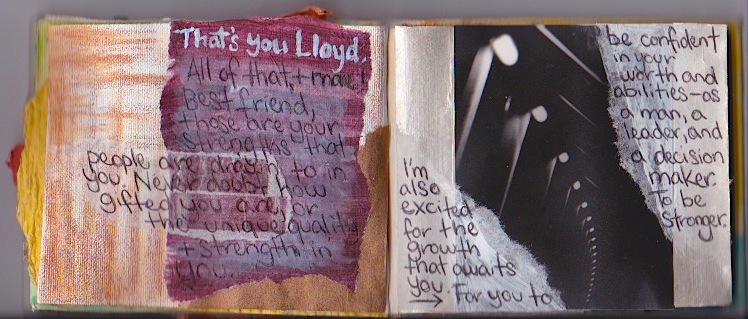 That's you Lloyd.
All of that, + more!
Best friend,
those are your
strengths that
people are drawn to in
you. Never doubt how
gifted you are, or
the unique quality
+ strength in
you.
I'm
also
excited
for the
growth
that awaits
you. For you to
→
be confident
in your
worth and
abilities—as
a man, a
leader, and
a decision
maker.
To be
stronger.